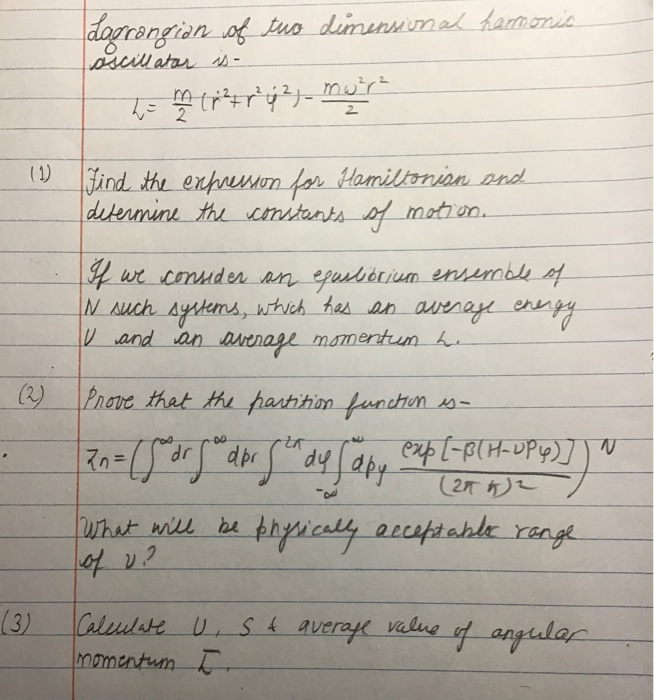 Lagrangian of two dimensional harmonic
oscillator is-
L = m/2 (ṙ² + r² φ̇²) - mω²r²/2
(1) Find the expression for Hamiltonian and
determine the constants of motion.
If we consider an equilibrium ensemble of
N such systems, which has an average energy
U and an average momentum L.
(2) Prove that the partition function is-
Zn = (∫^∞ dr ∫^∞ dpr ∫^2π dφ ∫_-∞^∞ dpφ exp[-β(H-νPφ)]/(2πħ)²)^N
What will be physically acceptable range
of ν?
(3) Calculate U, S & average value of angular
momentum L̅.